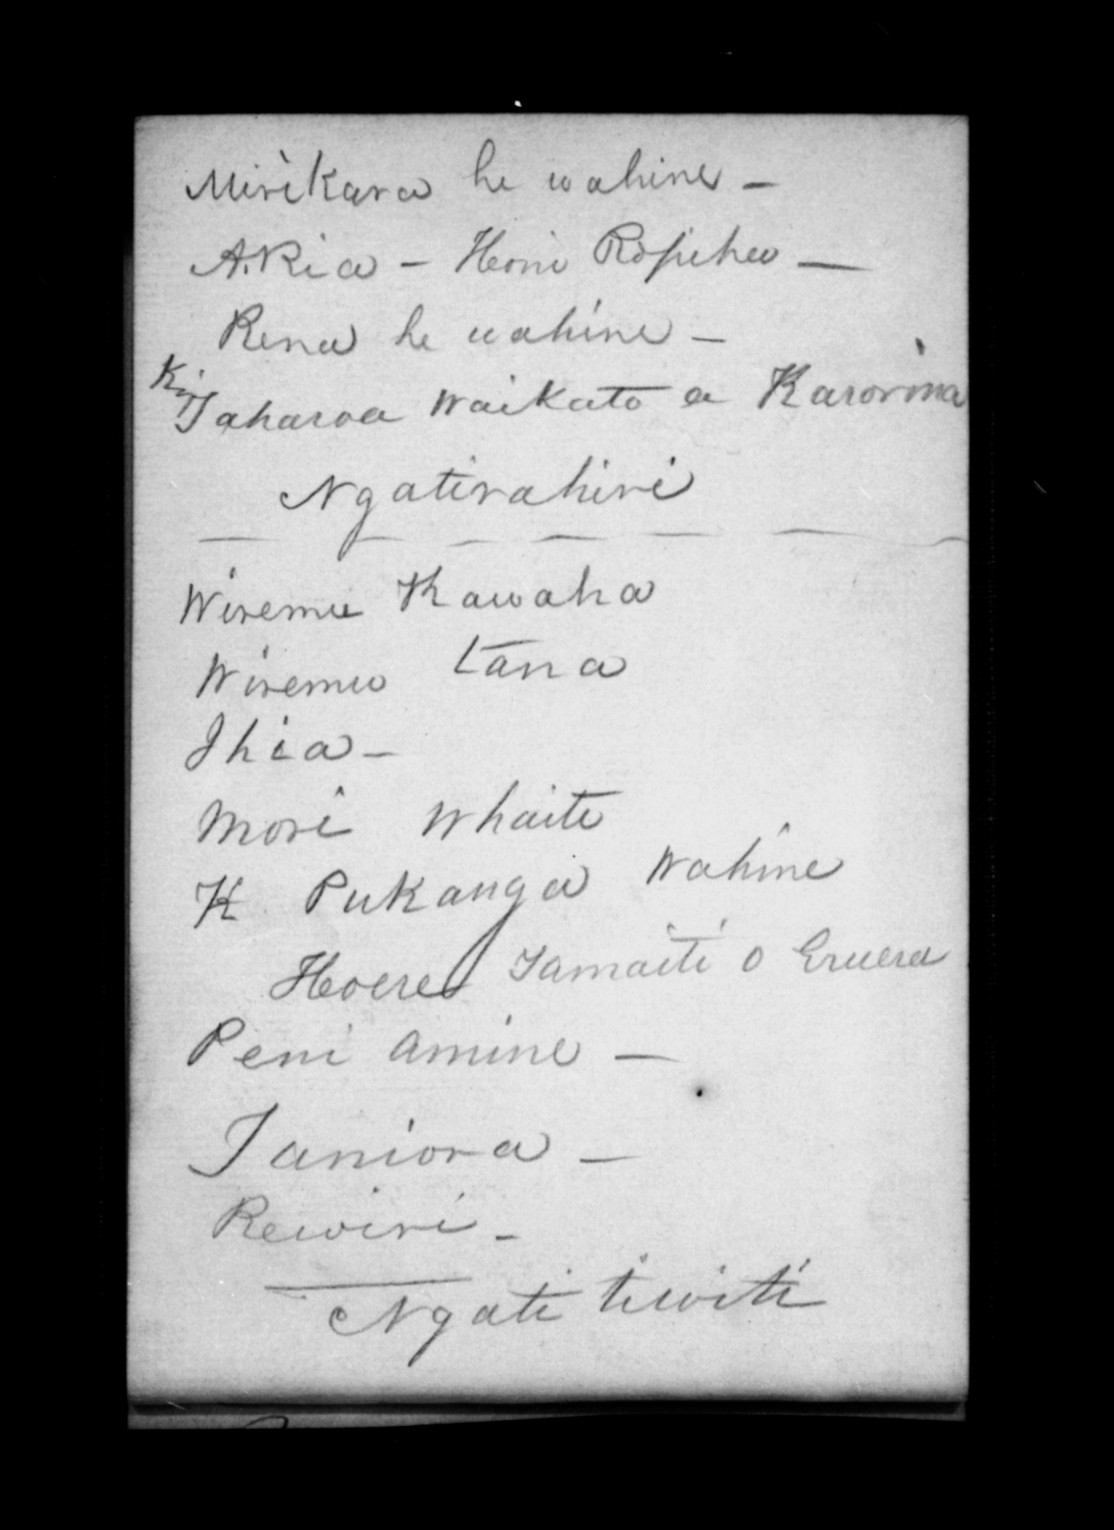 Mirikara he wahine -
A. Ria - Honi Ropiha -
Rena he wahine -
Ki Taharoa Waikato a Karorina
Ngatirahiri
Wiremu Kawaha
Wiremu tana
Ihia -
Mori Whaiti
K Pukanga Wahine
Hoera Tamaiti o Eruera
Peni Amine -
Taniora -
Rewiri -
Ngati tiwiti